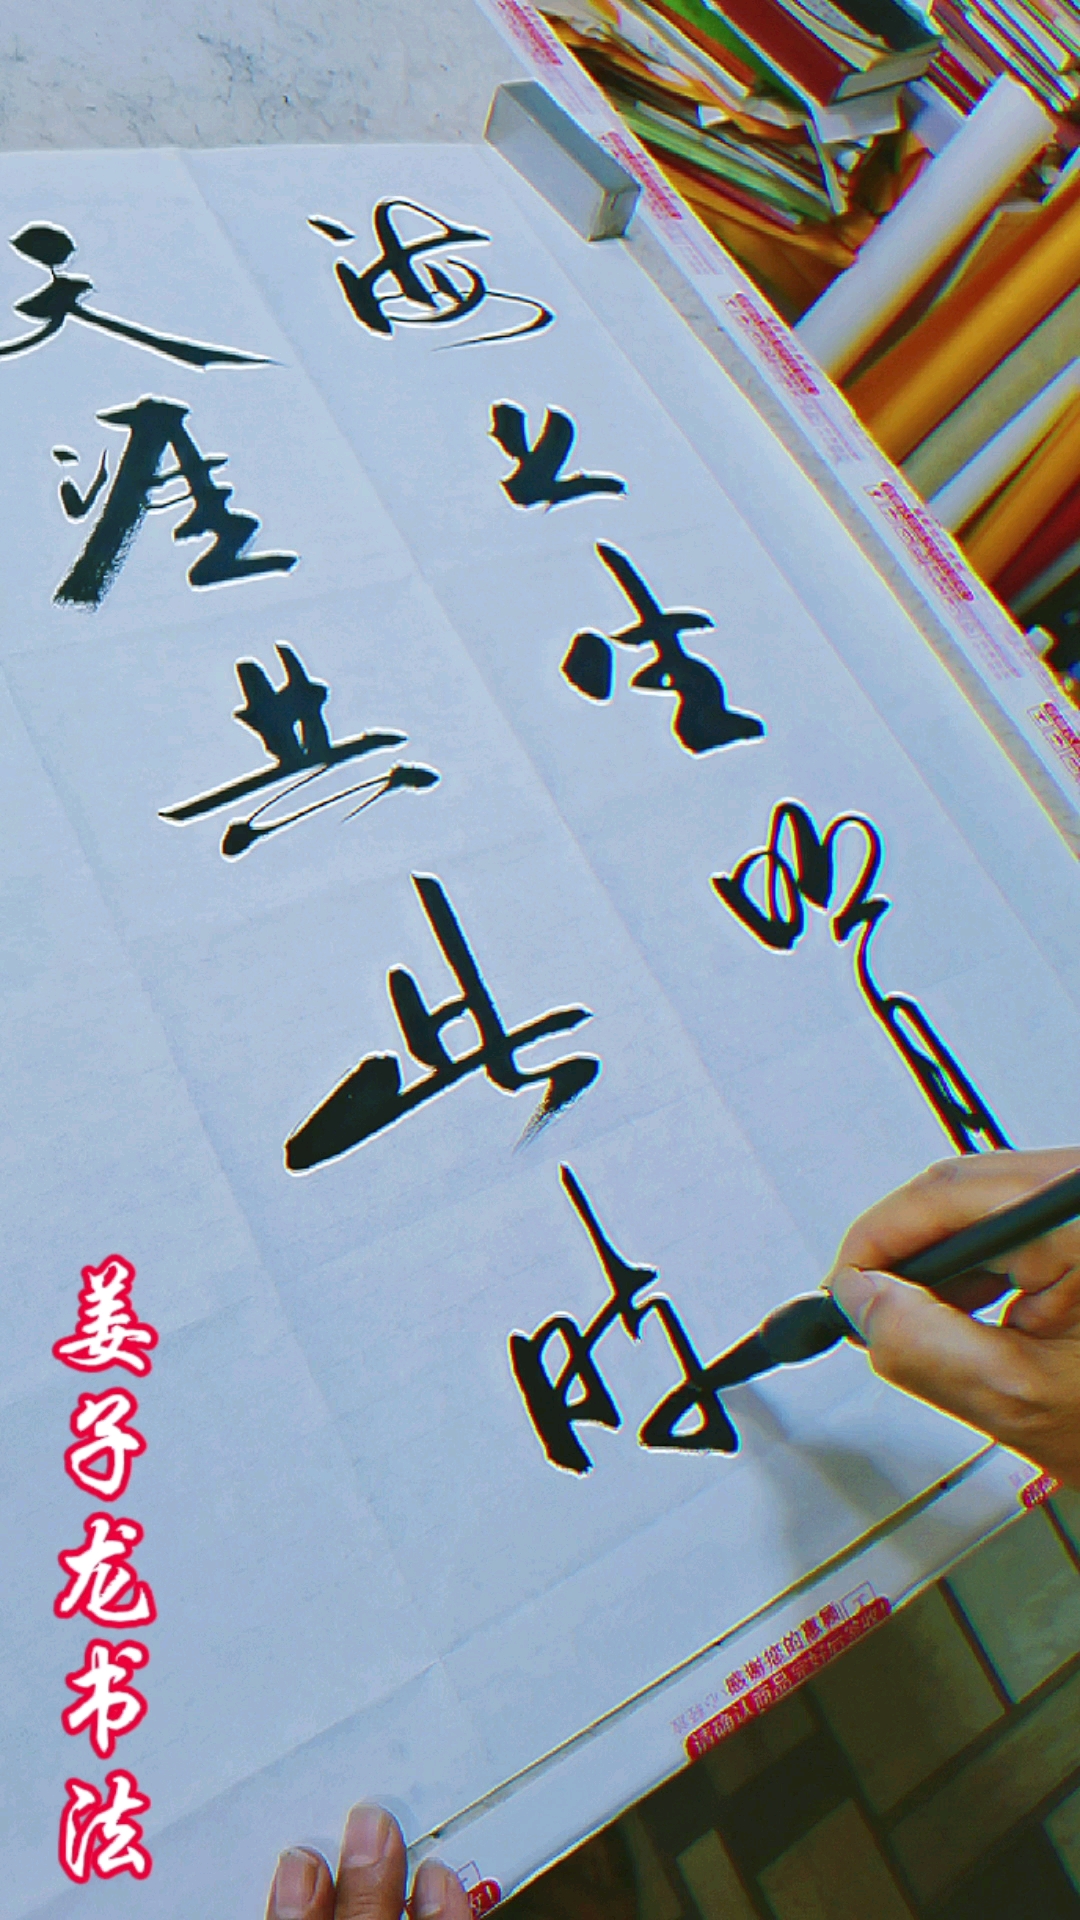 海上生明月
天涯共此时
姜子龙书法
感谢您的惠顾
请确认商品完好后签收!